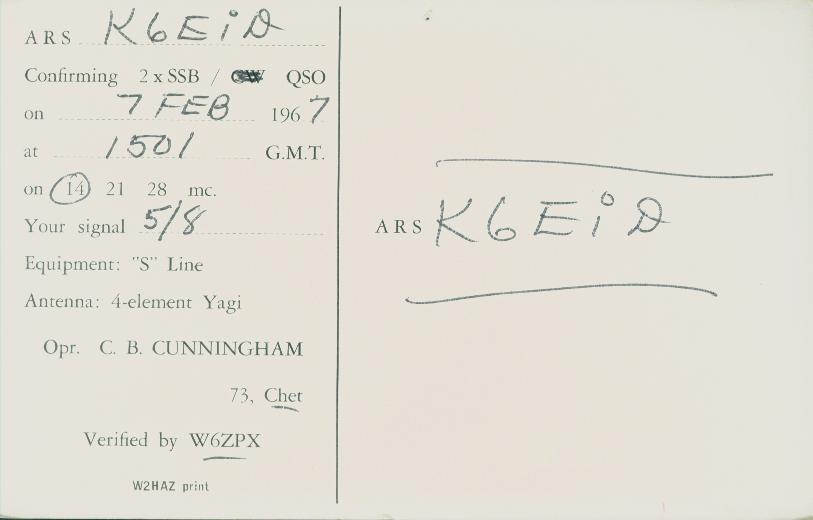 ARS K6EiD
Confirming 2 x SSB / CW QSO
on 7 FEB 1967
at 1501 G.M.T.
on 14 21 28 mc.
Your signal 5/8
Equipment: "S" Line
Antenna: 4-element Yagi
Opr. C. B. CUNNINGHAM
73, Chet
Verified by W6ZPX
W2HAZ print
ARS K6EiD